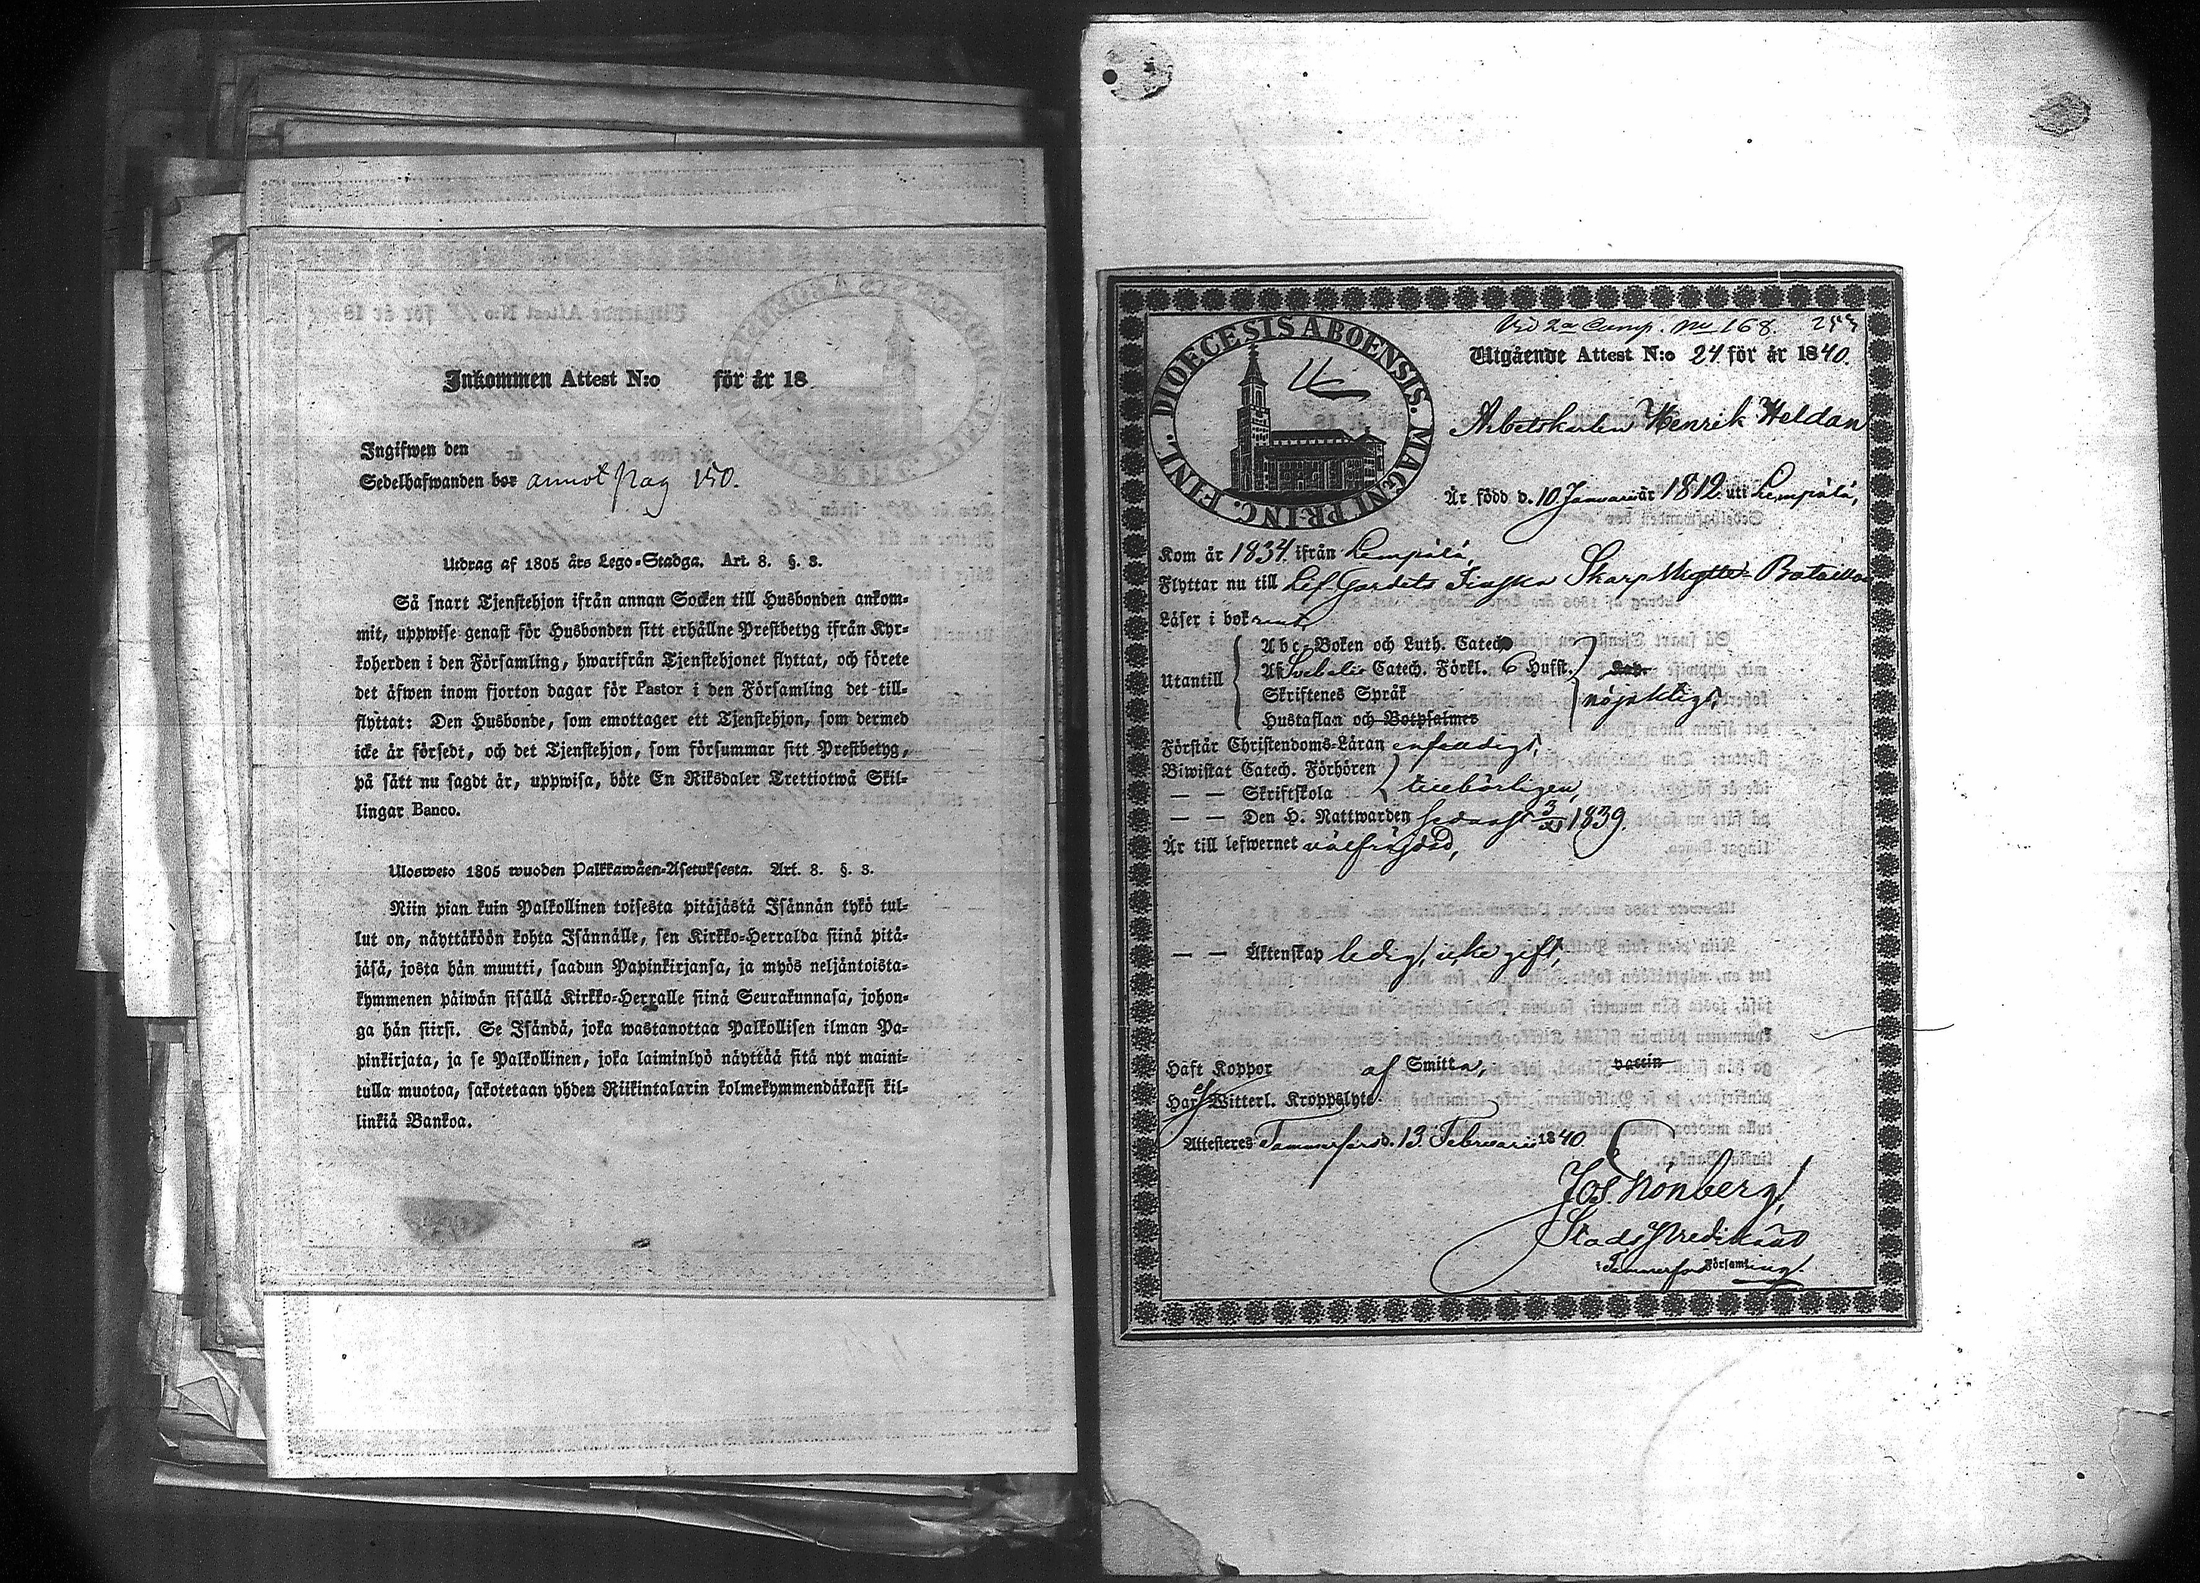 Inkommen Attest N:o för år 18
Ingifwen den
Sedelhafwanden bor annot pag 150.
Utdrag af 1805 års Lego-Stadga. Art. 8. §. 3.
Så snart Tjenstehjon ifrån annan Socken till Husbonden ankom-
mit, uppwise genast för Husbonden sitt erhållne Prestbetyg ifrån Kyr-
koherden i den Församling, hwarifrån Tjenstehjonet flyttat, och förete
det äfwen inom fjorton dagar för Pastor i den Församling det till-
flyttat: Den Husbonde, som emottager ett Tjenstehjon, som dermed
icke är försedt, och det Tjenstehjon, som försummar sitt Prestbetyg,
på sätt nu sagdt är, uppwisa, böte En Riksdaler Trettiotwå Skil-
lingar Banco.
Ulosweto 1805 wuoden Palkkawäen-Asetuksesta. Art. 8. §. 3.
Niin pian kuin Palkollinen toisesta pitäjästä Isännän tykö tul-
lut on, näyttäköön kohta Isännälle, sen Kirkko-Herralda siinä pitä-
jäsä, josta hän muutti, saadun Papinkirjansa, ja myös neljäntoista-
kymmenen päiwän sisällä Kirkko-Herralle siinä Seurakunnasa, johon-
ga hän siirsi. Se Isändä, joka wastanottaa Palkollisen ilman Pa-
pinkirjata, ja se Palkollinen, joka laiminlyö näyttää sitä nyt maini-
tulla muotoa, sakotetaan yhden Riikintalarin kolmekymmendäkaksi kil-
linkiä Bankoa.
DIOECESIS ABOENSIS. MAGNI PRINC. FINL.
Vid 2a Comp. No 168. 253
Utgående Attest N:o 24 för år 1840.
Arbetskarlen Henrik Heldan
Är född d. 10 Januari år 1812 uti Lempälä,
Kom år 1834 ifrån Lempälä,
Flyttar nu till Lif-Gardets Finska Skarp Skytte-Bataillon
Läser i bok rent,
Utantill
Abc-Boken och Luth. Catech
Af Svebelii Catech. Förkl. 6 Hufst.
Skriftenes Språk
Hustaflan och Botpsalmer
nöjaktigt,
Förstår Christendoms-Läran enfaldigt,
Biwistat Catech. Förhören
— — Skriftskola
tillbörligen,
— — Den H. Nattwarden sednast 3/XI 1839.
Är till lefwernet välfräjdad,
— — Äktenskap ledig, icke gift,
Haft Koppor af Smitta, vaccin
Har ej Witterl. Kroppslyte.
Attesteres Tammerfors d. 13 Februari 1840
Jos. Grönberg,
Stads Predikant
i Tammerfors Församling.